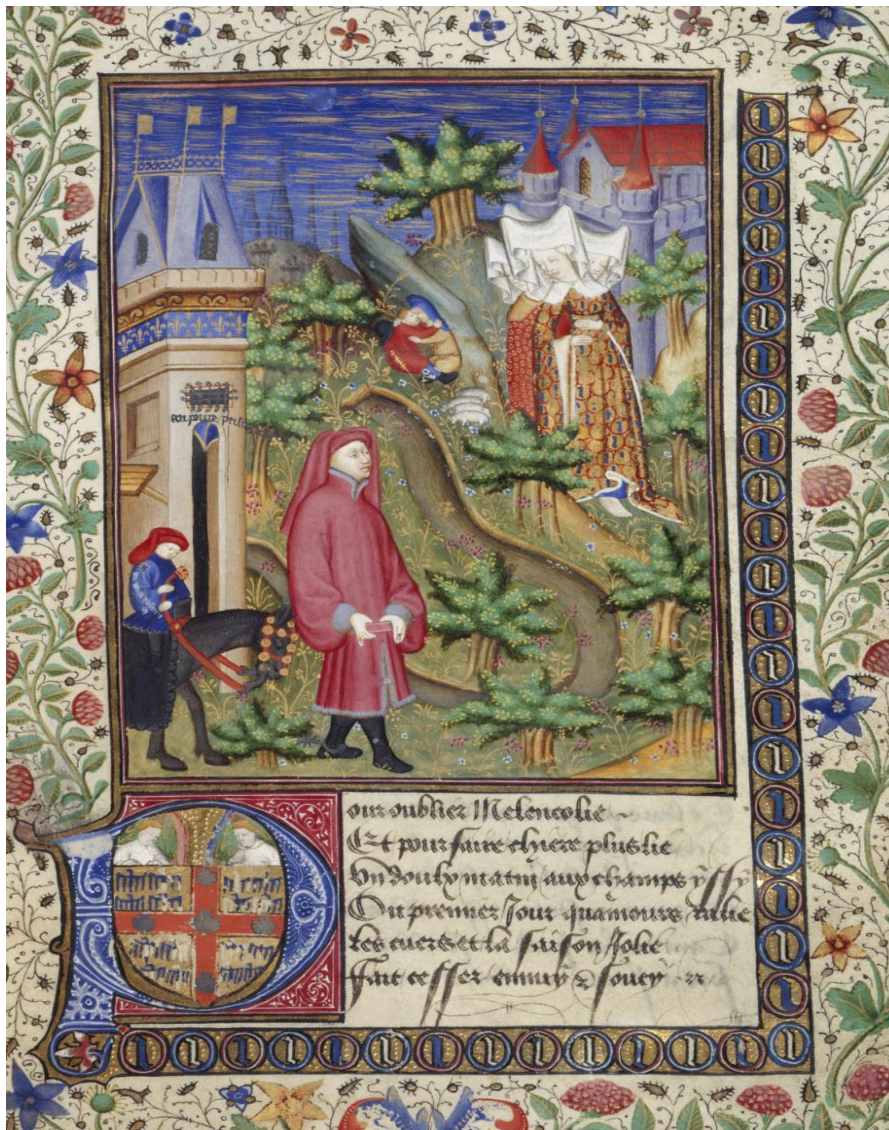 Pour oublier Melencolie
Et pour faire chiere plus lie
Vn doulx matin aux champs yssy
Ou premier Jour quamours ralie
Les cuers et la saison Jolie
fait cesser ennuy & soucy